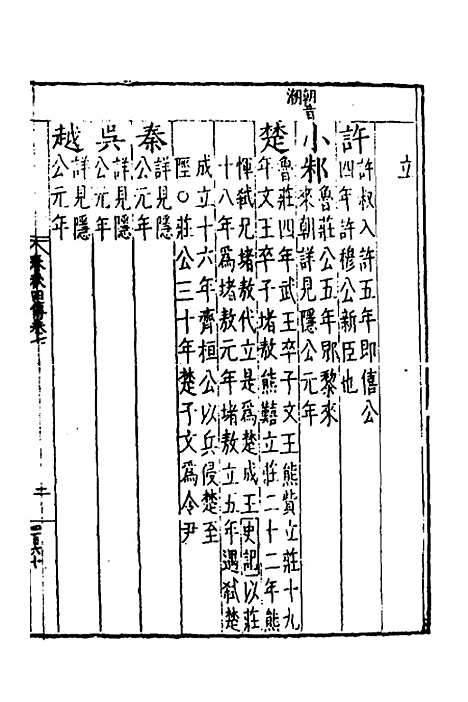 立
許
許叔入許五年即僖公
四年許穆公新臣也
朝音
潮
小邾
魯莊公五年郳黎來
來朝詳見隱公元年
楚
魯莊四年武王卒子文王熊貲立莊十九
年文王卒子堵敖熊囏立莊二十二年熊
惲弒兄堵敖代立是爲楚成王史記以莊
十八年爲堵敖元年堵敖立五年遇弒楚
成立十六年齊桓公以兵侵楚至
陘○莊公三十年楚子文爲令尹
秦
詳見隱
公元年
吳
詳見隱
公元年
越
詳見隱
公元年
春秋四傳卷七